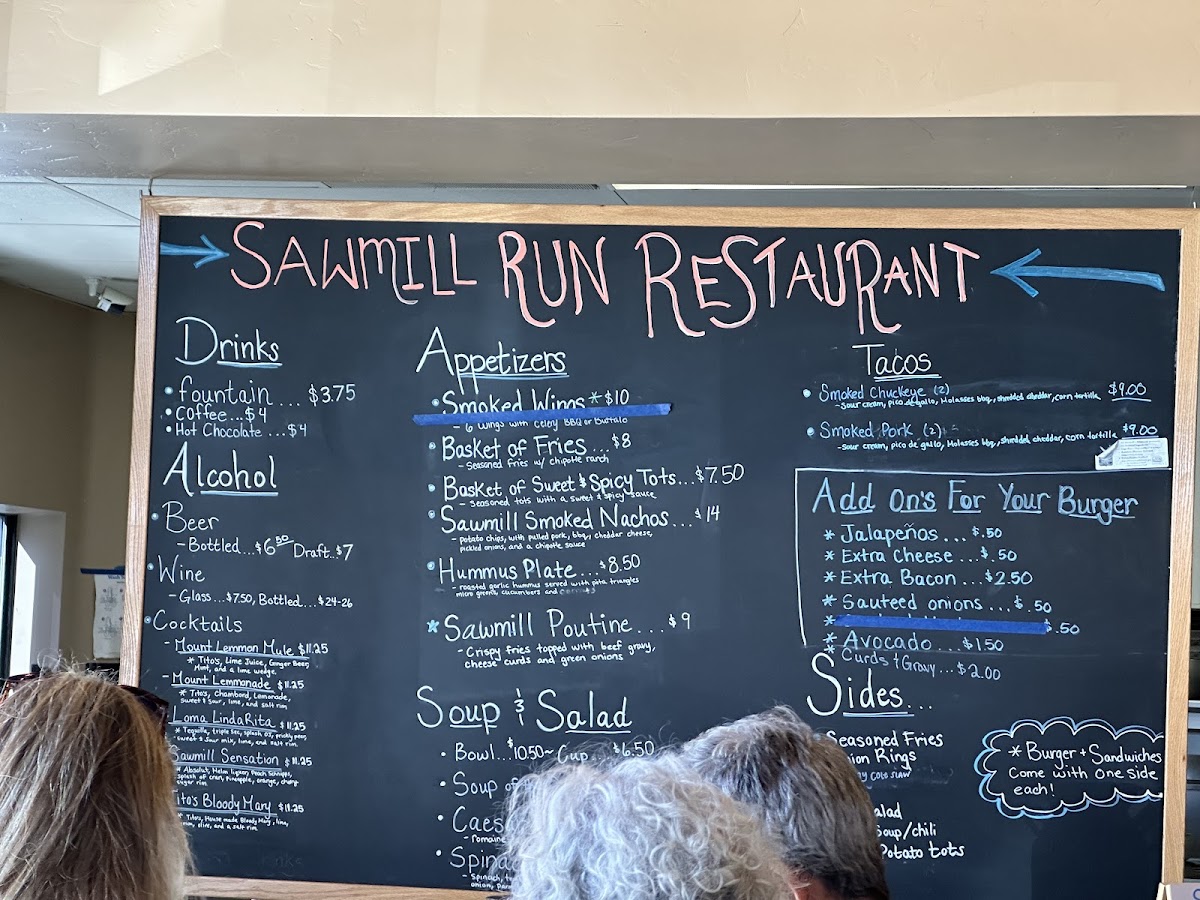 SAWMILL RUN RESTAURANT
Drinks
• fountain... $3.75
• Coffee...$4
• Hot Chocolate...$4
Alcohol
• Beer
- Bottled...$6.50 Draft..$7
• Wine
- Glass...$7.50, Bottled...$24-26
• Cocktails
- Mount Lemmon Mule $11.25
* Tito's, Lime Juice, Ginger Beer,
Mint, and a lime wedge.
- Mount Lemmonade $11.25
* Tito's, Chambord, Lemonade,
Sweet & Sour, lime, and salt rim
Loma LindaRita $11.25
* Tequilla, triple sec, splash OJ, prickly pear,
sweet & sour mix, lime, and salt rim.
Sawmill Sensation $11.25
* Absolut, Peach Schnapps,
splash of cran, Pineapple, orange, cherry
sugar rim
Tito's Bloody Mary $11.25
* Tito's, House made Bloody Mary, lime,
olive, and a salt rim
Appetizers
• Smoked Wings * $10
- 6 wings with Celery BBQ or Buffalo
• Basket of Fries... $8
- Seasoned fries w/ chipotle ranch
• Basket of Sweet & Spicy Tots...$7.50
- seasoned tots with a sweet & spicy sauce
• Sawmill Smoked Nachos...$14
- potato chips, with pulled pork, bbq, cheddar cheese,
pickled onions, and a chipotle sauce
• Hummus Plate...$8.50
- roasted garlic hummus served with pita triangles
micro greens, cucumbers and
* Sawmill Poutine...$9
- Crispy fries topped with beef gravy,
cheese curds and green onions
Soup & Salad
• Bowl..$10.50~ Cup $6.50
• Soup of
• Caes
- romaine
• Spina
- Spinach,
onion,
Tacos
• Smoked Chuckeye (2) $9.00
- Sour cream, pico de gallo, Molasses bbq, shredded cheddar, corn tortilla
• Smoked Pork (2) $9.00
- Sour cream, pico de gallo, Molasses bbq, shredded cheddar, corn tortilla
Add On's For Your Burger
* Jalapeños...$.50
* Extra Cheese...$.50
* Extra Bacon...$2.50
* Sauteed onions...$.50
* $.50
* Avocado...$1.50
* Curds & Gravy...$2.00
Sides...
Seasoned Fries
ion Rings
Cole slaw
alad
Soup/chili
Potato tots
* Burger + Sandwiches
Come with One side
each!